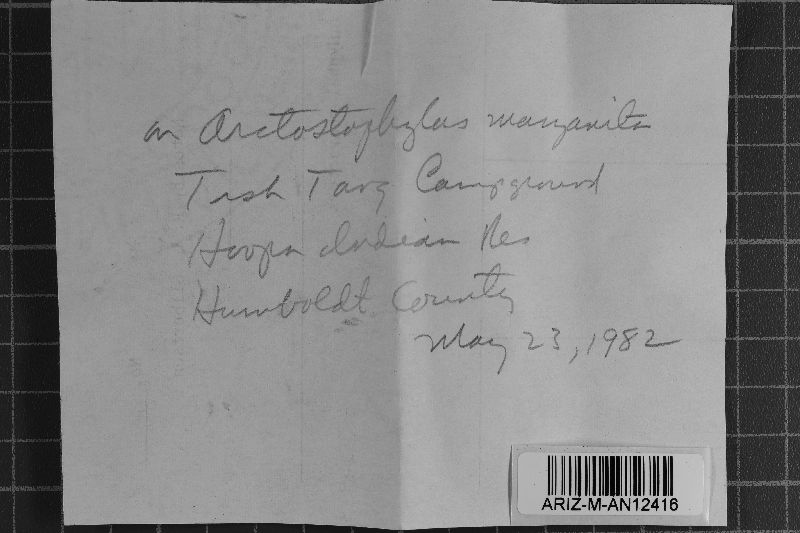 on Arctostaphylos manzanita
Tish Tang Campground
Hoopa Indian Res
Humboldt County
May 23, 1982
ARIZ-M-AN12416